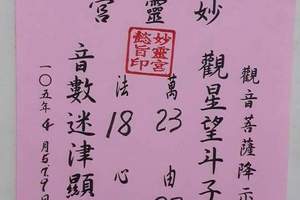 妙靈宮
觀音菩薩降示
觀星望斗子
萬23由
法18心
音數迷津顯
一〇五年4月
妙靈宮
懿旨印